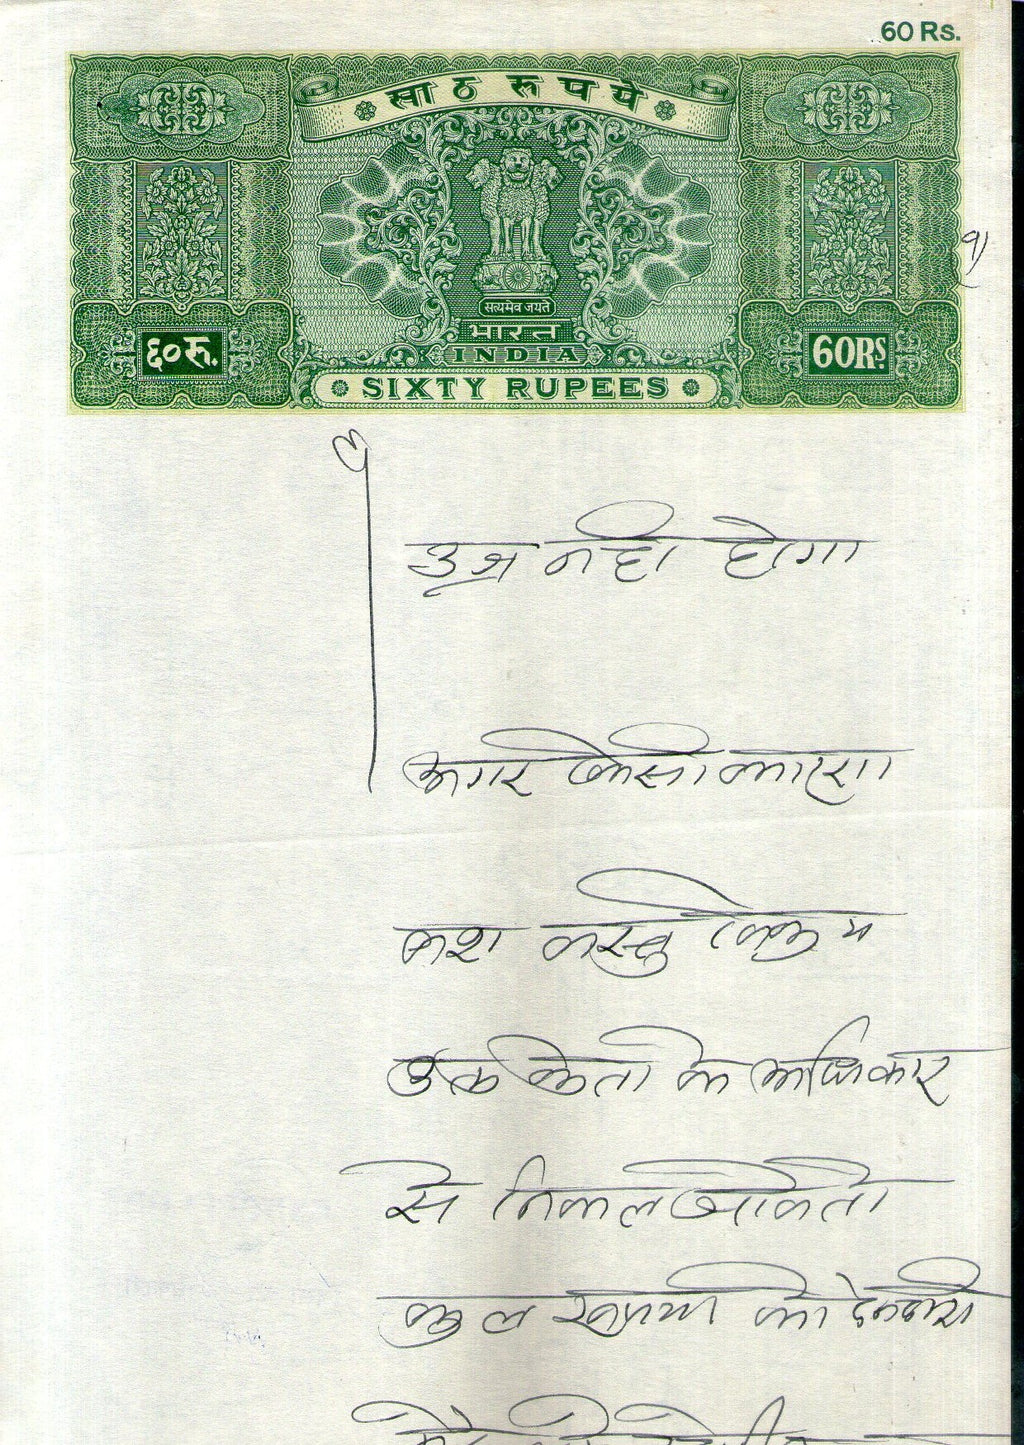 60 Rs.
साठ रुपये
सत्यमेव जयते
भारत
INDIA
६०रु.
60Rs.
SIXTY RUPEES
उज्र नही होगा
अगर किसी कारण
वश वस्तु विक्रय
उक्त क्रेता के अधिकार
से निकल जावे तो
कुल रुपया की देनदारी